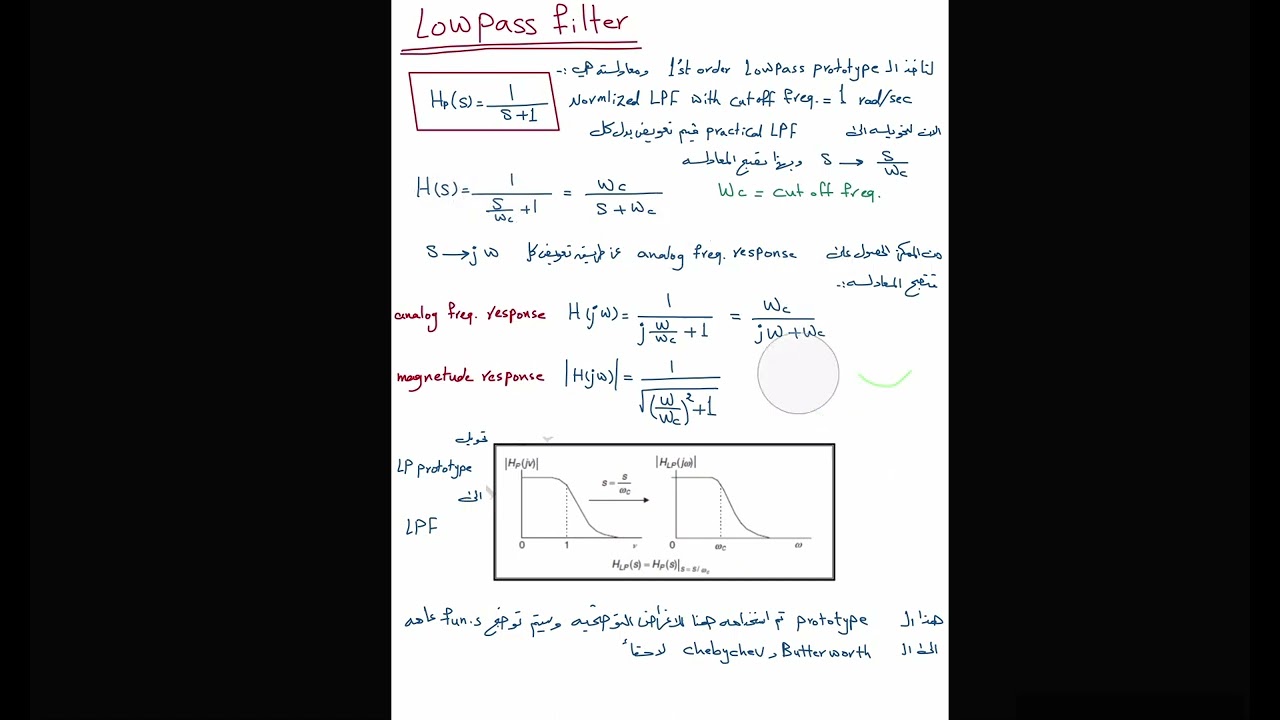 Lowpass filter
لنأخذ الـ 1'st order Lowpass prototype ومعادلته هي :-
Hp(s) = 1 / s+1
Normlized LPF with cutoff freq. = 1 rad/sec
الان لتحويله الى practical LPF فيتم تعويض بدل كل
s → s/wc وبهذا تصبح المعادلة
H(s) = 1 / (s/wc + 1) = wc / s + wc
wc = cut off freq.
من الممكن الحصول على analog freq. response عن طريق تعويض كل s → jw
فتصبح المعادلة :-
analog freq. response H(jw) = 1 / (j w/wc + 1) = wc / jw + wc
magnetude response |H(jw)| = 1 / √((w/wc)² + 1)
تحويل
LP prototype
الى
LPF
|HP(jv)| |HLP(jω)|
s = s/ωc
0 1 v 0 ωc ω
HLP(s) = HP(s)|s = s/ωc
هذا الـ prototype تم استخدامه هنا للاغراض التوضيحية وسيتم توضيح fun.s عامه
الى الـ Butterworth و chebychev لاحقاً